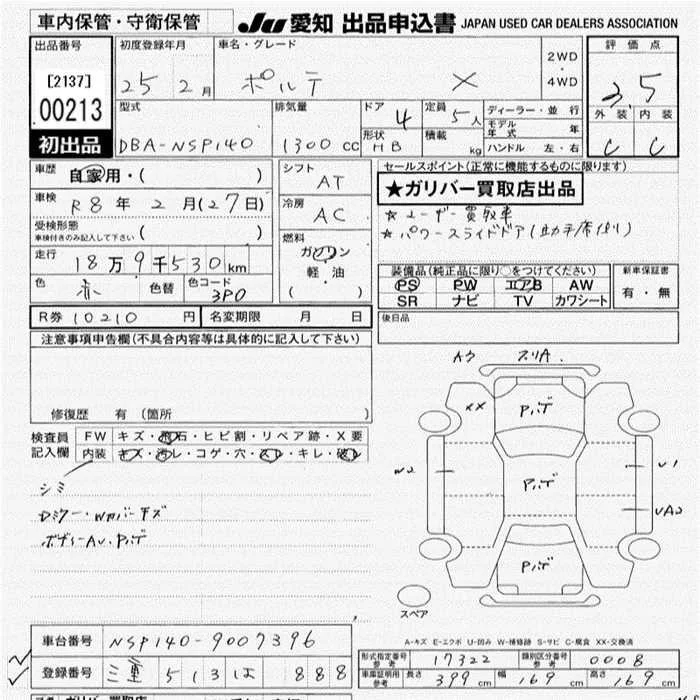 車内保管・守衛保管
JU 愛知 出品申込書 JAPAN USED CAR DEALERS ASSOCIATION
出品番号
[2137]
00213
初出品
初度登録年月
25 2 月
車名・グレード
ポルテ X
2WD
・
4WD
評価点
3.5
外装 内装
C C
型式
DBA-NSP140
排気量
1300 cc
ドア 4
形状 HB
定員 5 人
積載 kg
ディーラー・並行
モデル年式 年
ハンドル 左・右
車歴
自家用・( )
車検 R8 年 2 月(27日)
受検形態
車検付きのみ記入して下さい ( )
走行 18万9千530km
色 赤 色替 色コード 3P0
シフト
AT
冷房
AC
燃料
ガソリン
軽・油
( )
セールスポイント(正常に機能するものに限ります)
★ガリバー買取店出品
★ユーザー買取車
★パワースライドドア(助手席側)
装備品(純正品に限り○をつけてください)
PS PW エアB AW
SR ナビ TV カワシート
新車保証書
有・無
R券 10210 円 名変期限 月 日
後日品
注意事項申告欄(不具合内容等は具体的に記入して下さい)
修復歴 有 (箇所 )
検査員記入欄
FW キズ・飛石・ヒビ割・リペア跡・X要
内装 キズ・汚レ・コゲ・穴・スレ・キレ・破レ
シミ
Dミラー・Wカバーキズ
ボディーAU・Pハゲ
スリA
XX
Pハゲ
W2
U1
Pハゲ
UA2
Pハゲ
スペア
A-キズ E-エクボ U-凹み W-補修跡 S-サビ C-腐食 XX-交換済
車台番号 NSP140-9007396
登録番号 三重 513 は 888
型式指定番号 参考 17322 類別区分番号 参考 0008
車庫証明用 参考 長さ 399 cm 幅 169 cm 高さ 169 cm